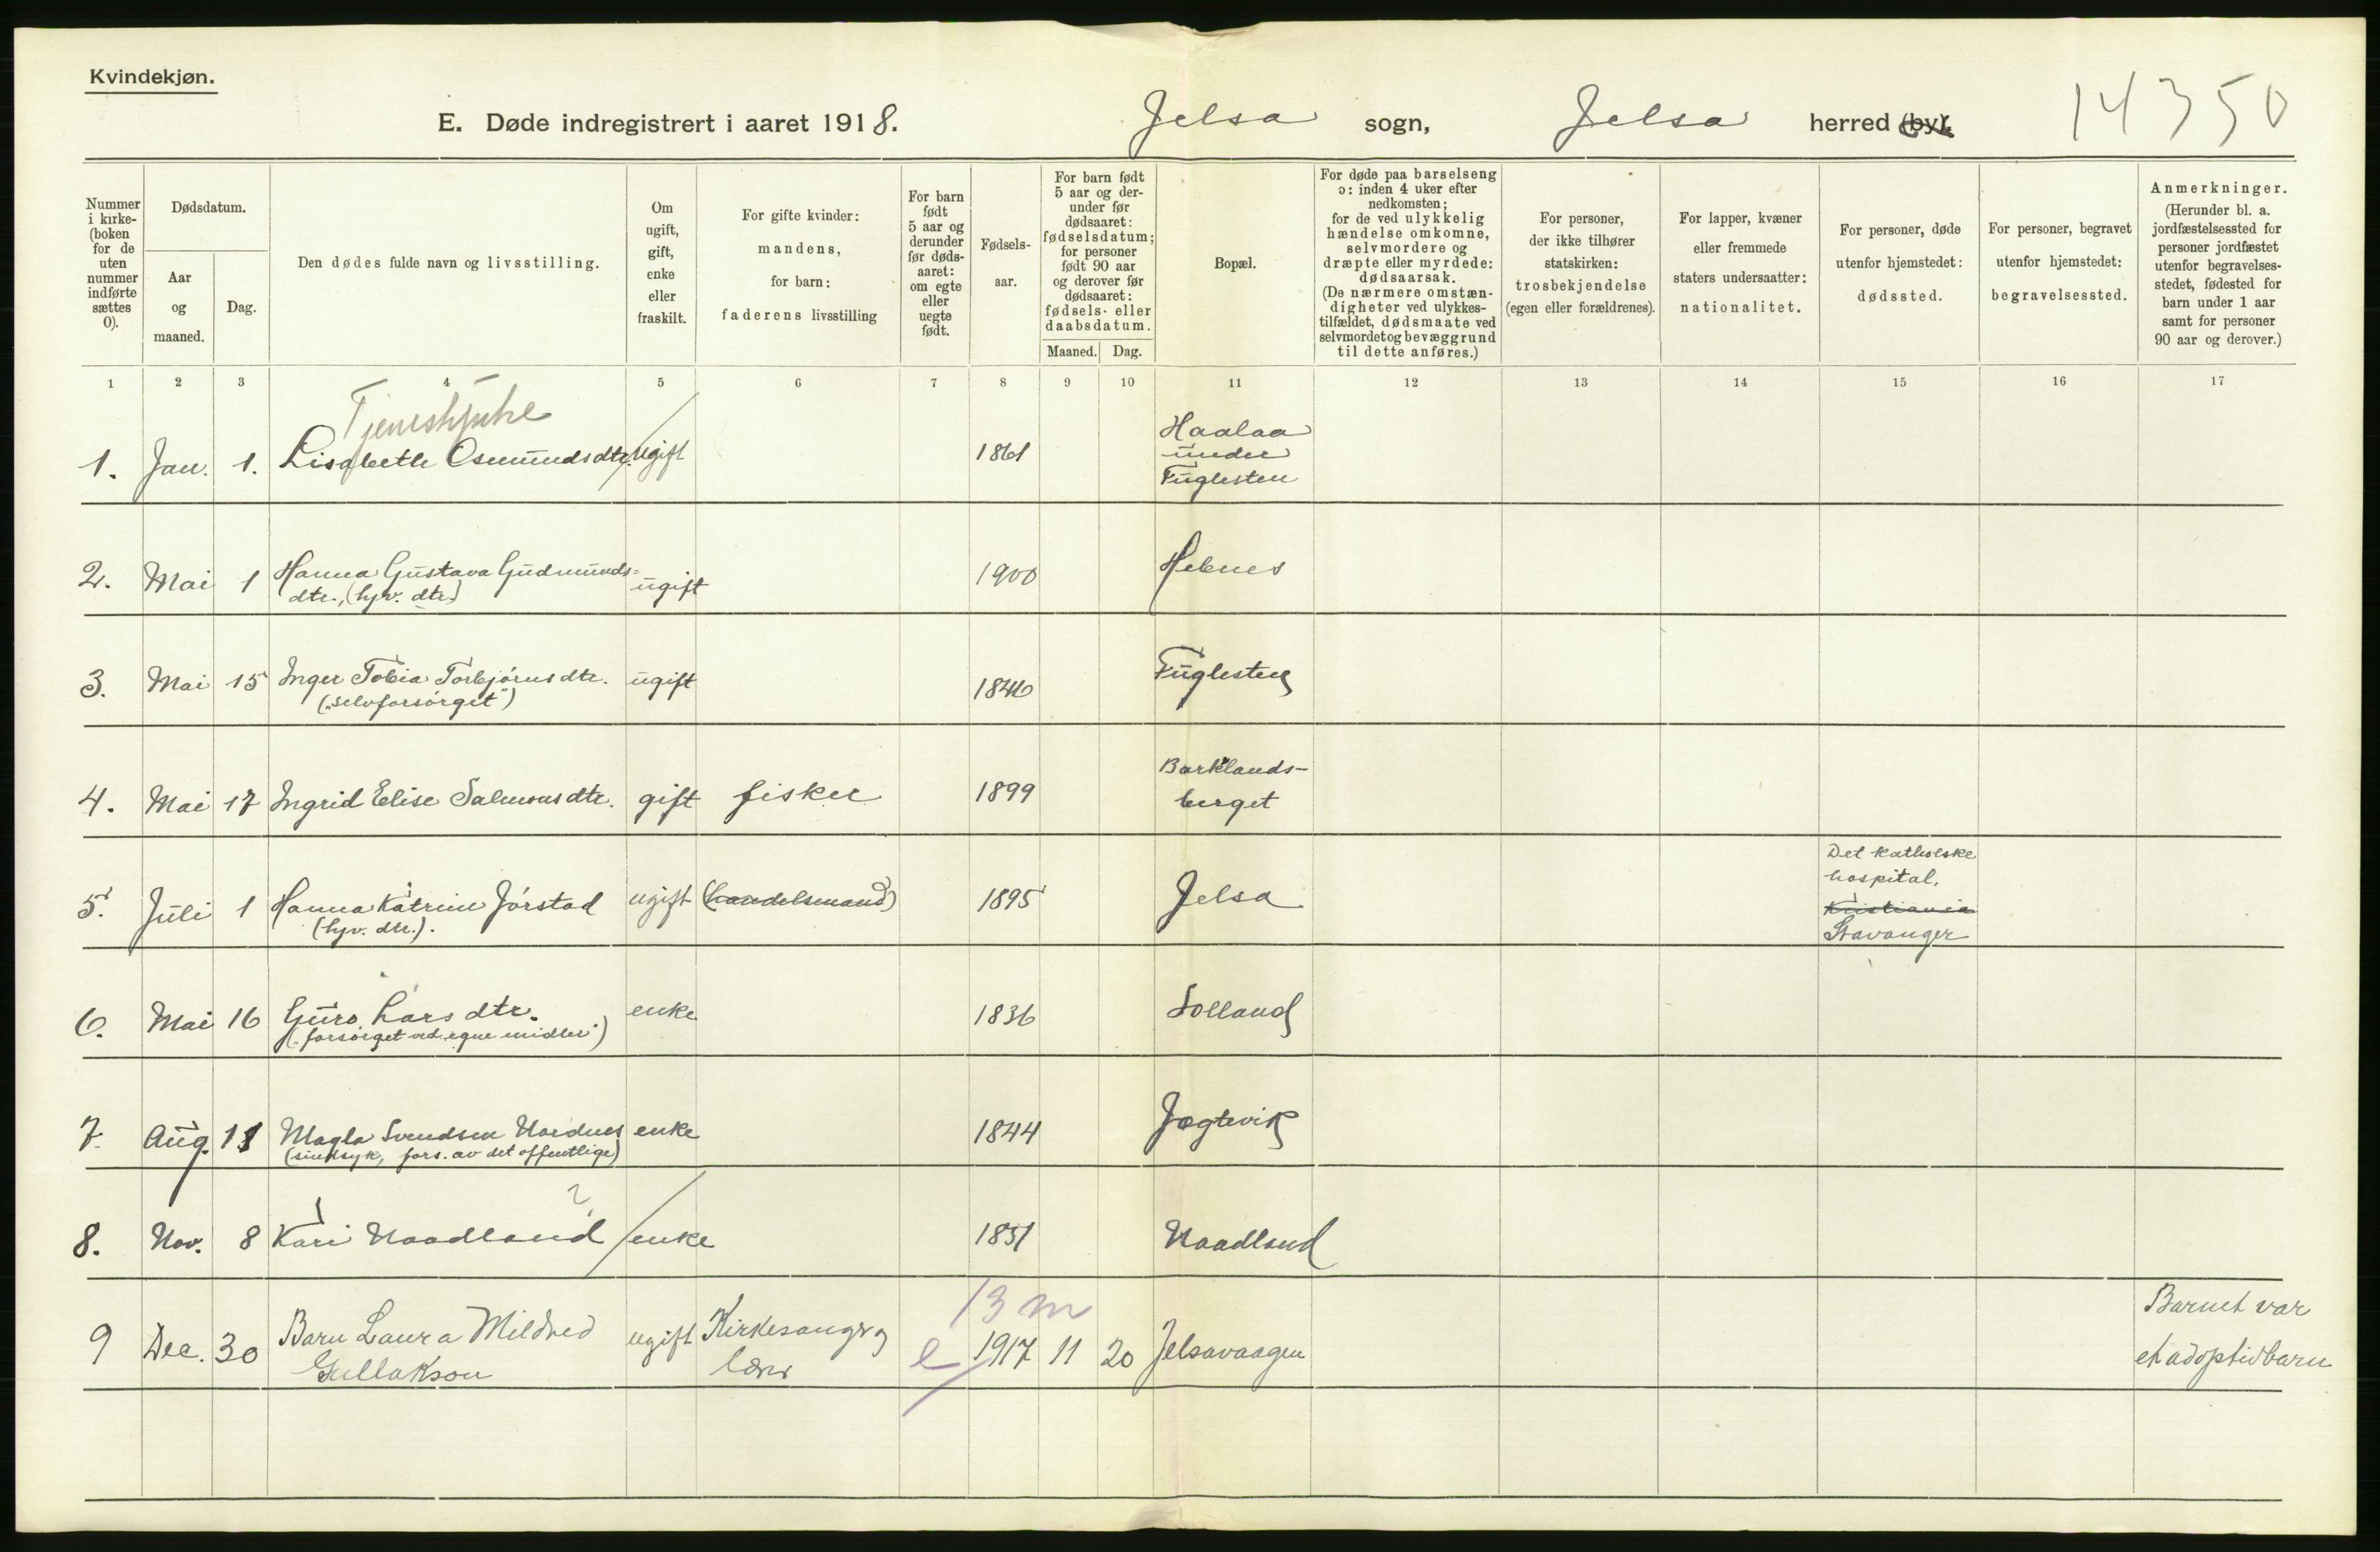 Kvindekjøn.
E. Døde indregistrert i aaret 1918. Jelsa sogn, Jelsa herred (by). 14350
Nummer i kirke- (boken for de uten nummer indførte sættes 0).
Dødsdatum.
Aar og maaned.
Dag.
Den dødes fulde navn og livsstilling.
Om ugift, gift, enke eller fraskilt.
For gifte kvinder: mandens, for barn: faderens livsstilling
For barn født 5 aar og derunder før døds- aaret: om egte eller uegte født.
Fødsels- aar.
For barn født 5 aar og der- under før dødsaaret: fødselsdatum; for personer født 90 aar og derover før dødsaaret: fødsels- eller daabsdatum.
Maaned. Dag.
Bopæl.
For døde paa barselseng ɔ: inden 4 uker efter nedkomsten; for de ved ulykkelig hændelse omkomne, selvmordere og dræpte eller myrdede: dødsaarsak. (De nærmere omstæn- digheter ved ulykkes- tilfældet, dødsmaate ved selvmordet og bevæggrund til dette anføres.)
For personer, der ikke tilhører statskirken: trosbekjendelse (egen eller forældrenes).
For lapper, kvæner eller fremmede staters undersaatter: nationalitet.
For personer, døde utenfor hjemstedet: dødssted.
For personer, begravet utenfor hjemstedet: begravelsessted.
Anmerkninger. (Herunder bl. a. jordfæstelsessted for personer jordfæstet utenfor begravelses- stedet, fødested for barn under 1 aar samt for personer 90 aar og derover.)
1 2 3 4 5 6 7 8 9 10 11 12 13 14 15 16 17
1. Jan. 1. Lisabeth Osmundsdtr. ugift 1861 Haalaa
under
Fuglesten
2. Mai 1 Hanna Gustava Gudmunds= ugift 1900 Hebnes
dtr., (hjv. dtr.)
3. Mai 15 Inger Tobia Torbjørnsdtr. ugift 1846 Fuglesten
("selvforsørget")
4. Mai 17 Ingrid Elise Salmonsdtr. gift fisker 1899 Barklands-
berget
5. Juli 1 Hanna Katrine Jørstad ugift (handelsmand) 1895 Jelsa Det katholske
hospital,
Kristiania
Stavanger
(hjv. dtr.).
6. Mai 16 Guro Larsdtr. enke 1836 Solland
("forsørget ved egne midler")
7. Aug. 11 Magla Svendsen Nordnes enke 1844 Jøgtevik
(sindsyk, fors. av det offentlige)
8. Nov. 8 Kari Naadland ? enke 1831 Naadland
13 m
9 Dec. 30 Barn Laura Mildred ugift Kirkesanger og e 1917 11 20 Jelsavaagen Barnet var
Gullakson lærer et adoptivbarn